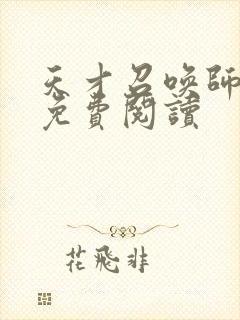 天才召喚師
免費閱讀
花飛非